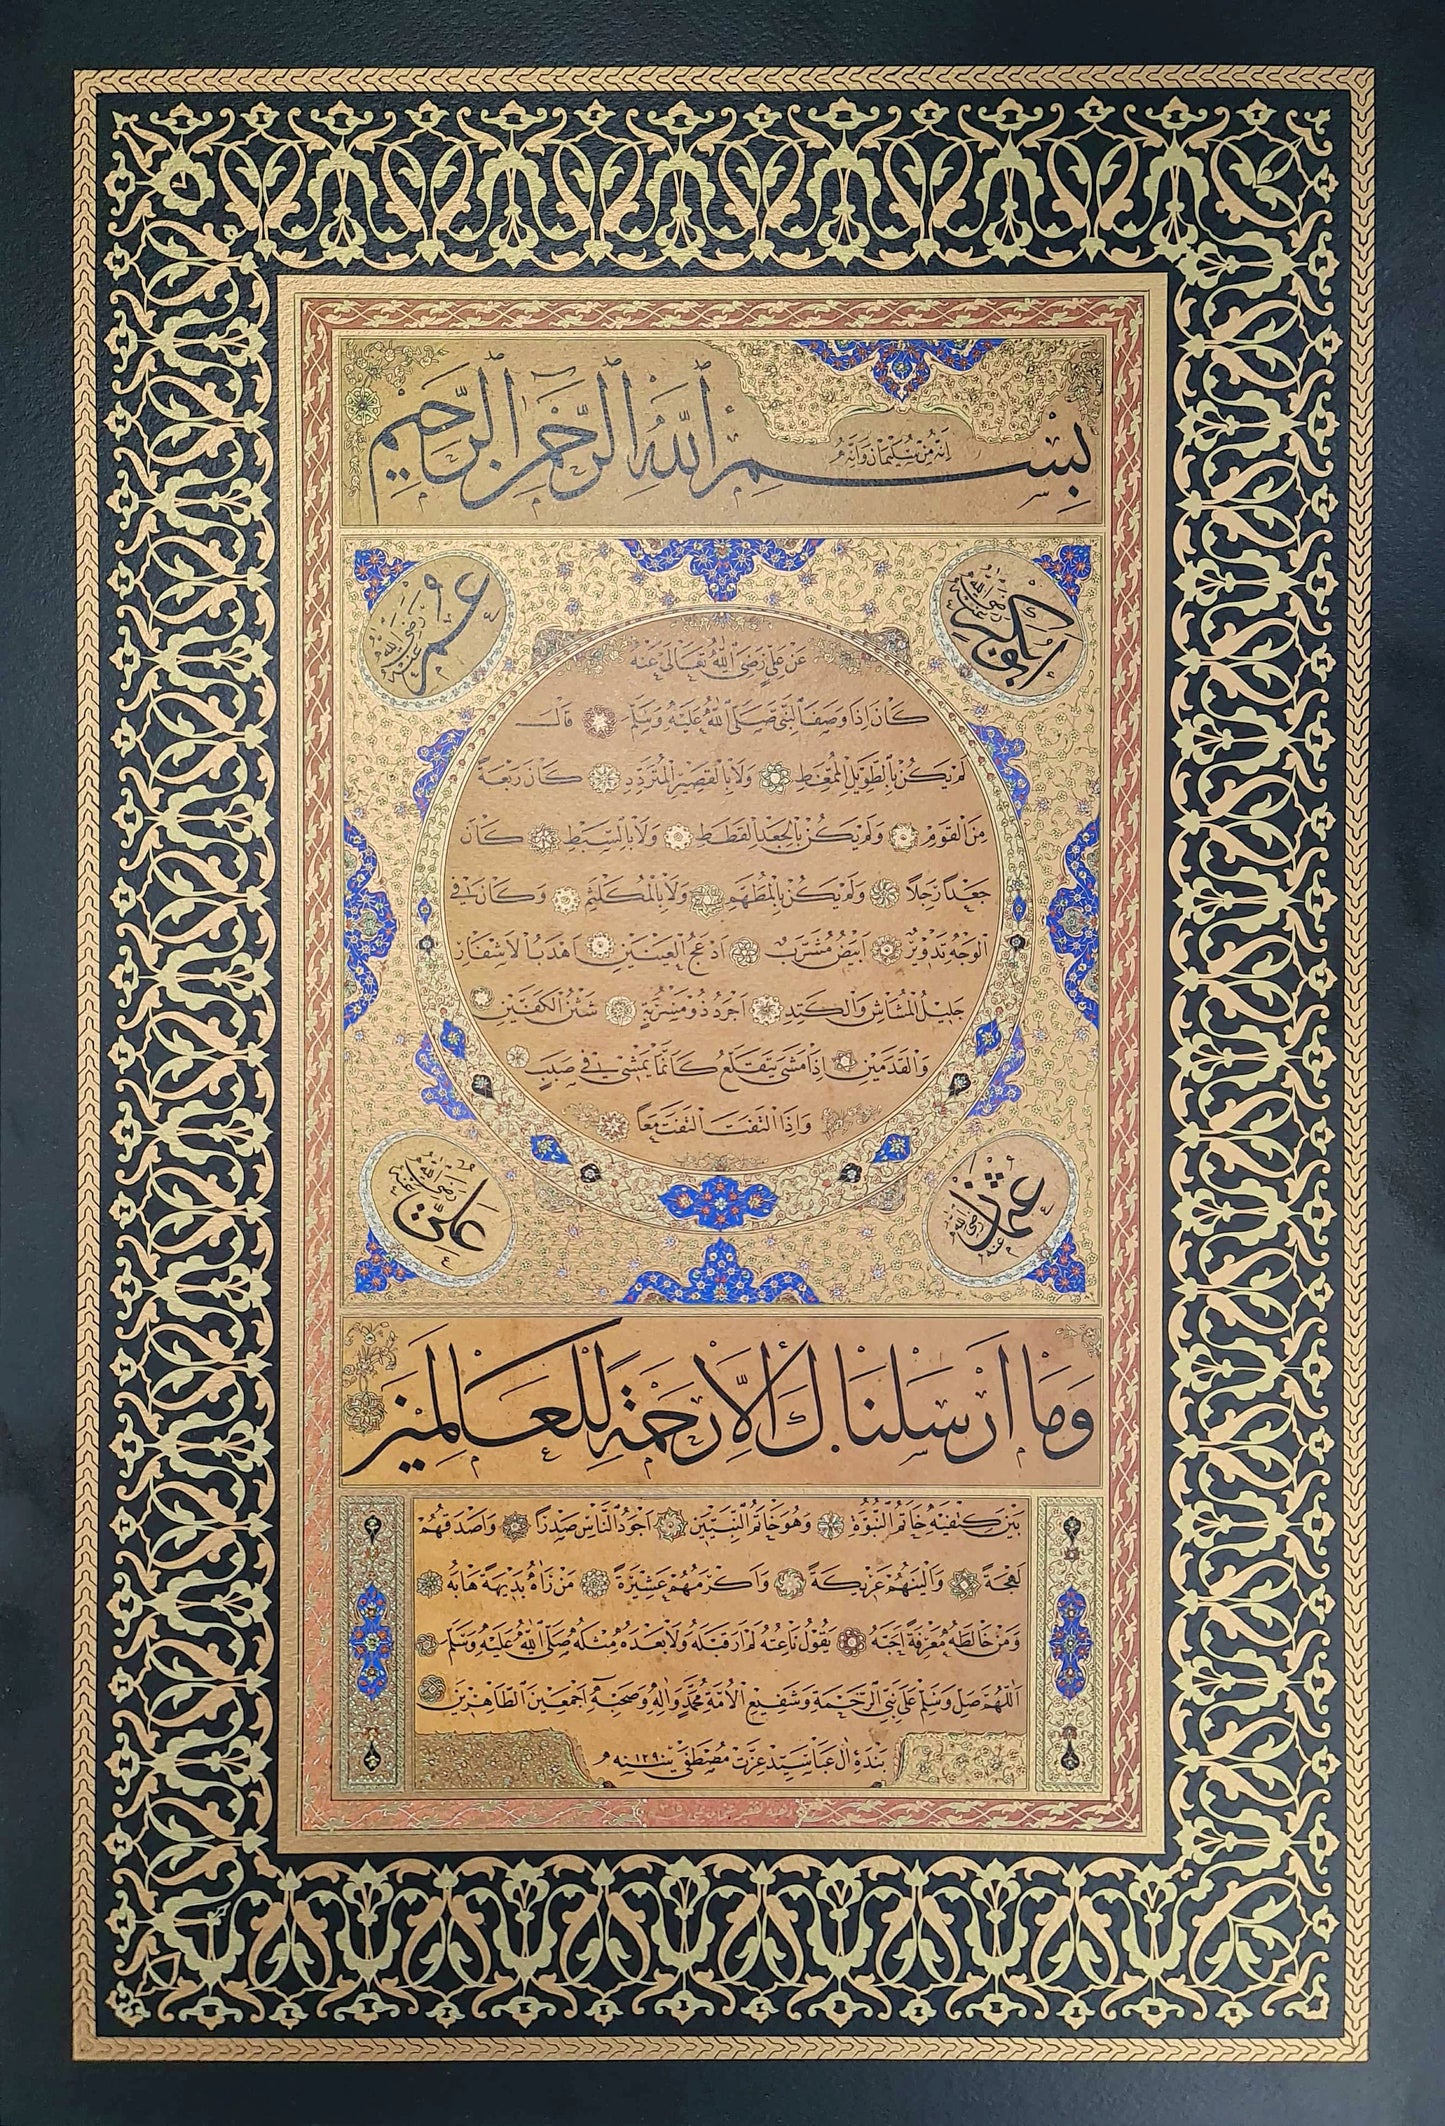 بِسْمِ اللهِ الرَّحْمٰنِ الرَّحِيْمِ
اِنَّهُ مِنْ سُلَيْمَانَ وَاِنَّهُ
ابو بكر رضى الله عنه
عمر رضى الله عنه
عَنْ عَلِيٍّ رَضِىَ اللهُ تَعَالٰى عَنْهُ
كَانَ اِذَا وَصَفَ النَّبِىَّ صَلَّى اللهُ عَلَيْهِ وَسَلَّمَ قَالَ
لَمْ يَكُنْ بِالطَّوِيْلِ الْمُمَّغِطِ وَلَا بِالْقَصِيْرِ الْمُتَرَدِّدِ كَانَ رَبْعَةً
مِنَ الْقَوْمِ وَلَمْ يَكُنْ بِالْجَعْدِ الْقَطَطِ وَلَا بِالسَّبْطِ كَانَ
جَعْدًا رَجِلًا وَلَمْ يَكُنْ بِالْمُطَهَّمِ وَلَا بِالْمُكَلْثَمِ وَكَانَ فِى
الْوَجْهِ تَدْوِيْرٌ اَبْيَضُ مُشْرَبٌ اَدْعَجُ الْعَيْنَيْنِ اَهْدَبُ الْاَشْفَارِ
جَلِيْلُ الْمُشَاشِ وَالْكَتَدِ اَجْرَدُ ذُوْ مَسْرُبَةٍ شَثْنُ الْكَفَّيْنِ
وَالْقَدَمَيْنِ اِذَا مَشٰى يَتَقَلَّعُ كَاَنَّمَا يَمْشِىْ فِى صَبَبٍ
وَاِذَا الْتَفَتَ الْتَفَتَ مَعًا
عثمان رضى الله عنه
على رضى الله عنه
وَمَا اَرْسَلْنَاكَ اِلَّا رَحْمَةً لِلْعَالَمِيْنَ
بَيْنَ كَتِفَيْهِ خَاتَمُ النُّبُوَّةِ وَهُوَ خَاتَمُ النَّبِيِّيْنَ اَجْوَدُ النَّاسِ صَدْرًا وَاَصْدَقُهُمْ
لَهْجَةً وَاَلْيَنُهُمْ عَرِيْكَةً وَاَكْرَمُهُمْ عَشِيْرَةً مَنْ رَاٰهُ بَدِيْهَةً هَابَهُ
وَمَنْ خَالَطَهُ مَعْرِفَةً اَحَبَّهُ يَقُوْلُ نَاعِتُهُ لَمْ اَرَ قَبْلَهُ وَلَا بَعْدَهُ مِثْلَهُ صَلَّى اللهُ عَلَيْهِ وَسَلَّمَ
اَللّٰهُمَّ صَلِّ وَسَلِّمْ عَلٰى نَبِىِّ الرَّحْمَةِ وَشَفِيْعِ الْاُمَّةِ مُحَمَّدٍ وَاٰلِهِ وَصَحْبِهِ اَجْمَعِيْنَ الطَّاهِرِيْنَ
بَنْدَۀ اٰلِ عَبَا سَيِّدْ عِزَّتْ مُصْطَفٰى سنه ١٢٩٠